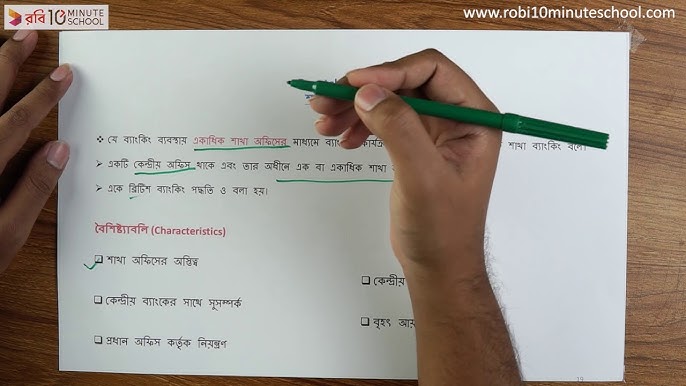 রবি 10 MINUTE SCHOOL
www.robi10minuteschool.com
❖ যে ব্যাংকিং ব্যবস্থায় একাধিক শাখা অফিসের মাধ্যমে শাখা ব্যাংকিং বলে।
➢ একটি কেন্দ্রীয় অফিস থাকে এবং তার অধীনে এক বা একাধিক শাখা
➢ একে ব্রিটিশ ব্যাংকিং পদ্ধতি ও বলা হয়।
বৈশিষ্ট্যাবলি (Characteristics)
❑ শাখা অফিসের অস্তিত্ব
❑ কেন্দ্রীয়
❑ কেন্দ্রীয় ব্যাংকের সাথে সুসম্পর্ক
❑ বৃহৎ
❑ প্রধান অফিস কর্তৃক নিয়ন্ত্রণ